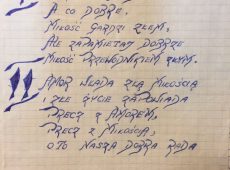 A CO DOBRE.
MIŁOŚĆ GARDZI ZŁEM,
ALE ZAPAMIĘTAM DOBRZE
MIŁOŚĆ PRZEWODNIKIEM ZŁYM.
AMOR WŁADA ZŁĄ MIŁOŚCIĄ
I ZŁE ŻYCIE ZAPOWIADA
PRECZ Z AMOREM,
PRECZ Z MIŁOŚCIĄ,
OTO NASZA DOBRA RADA